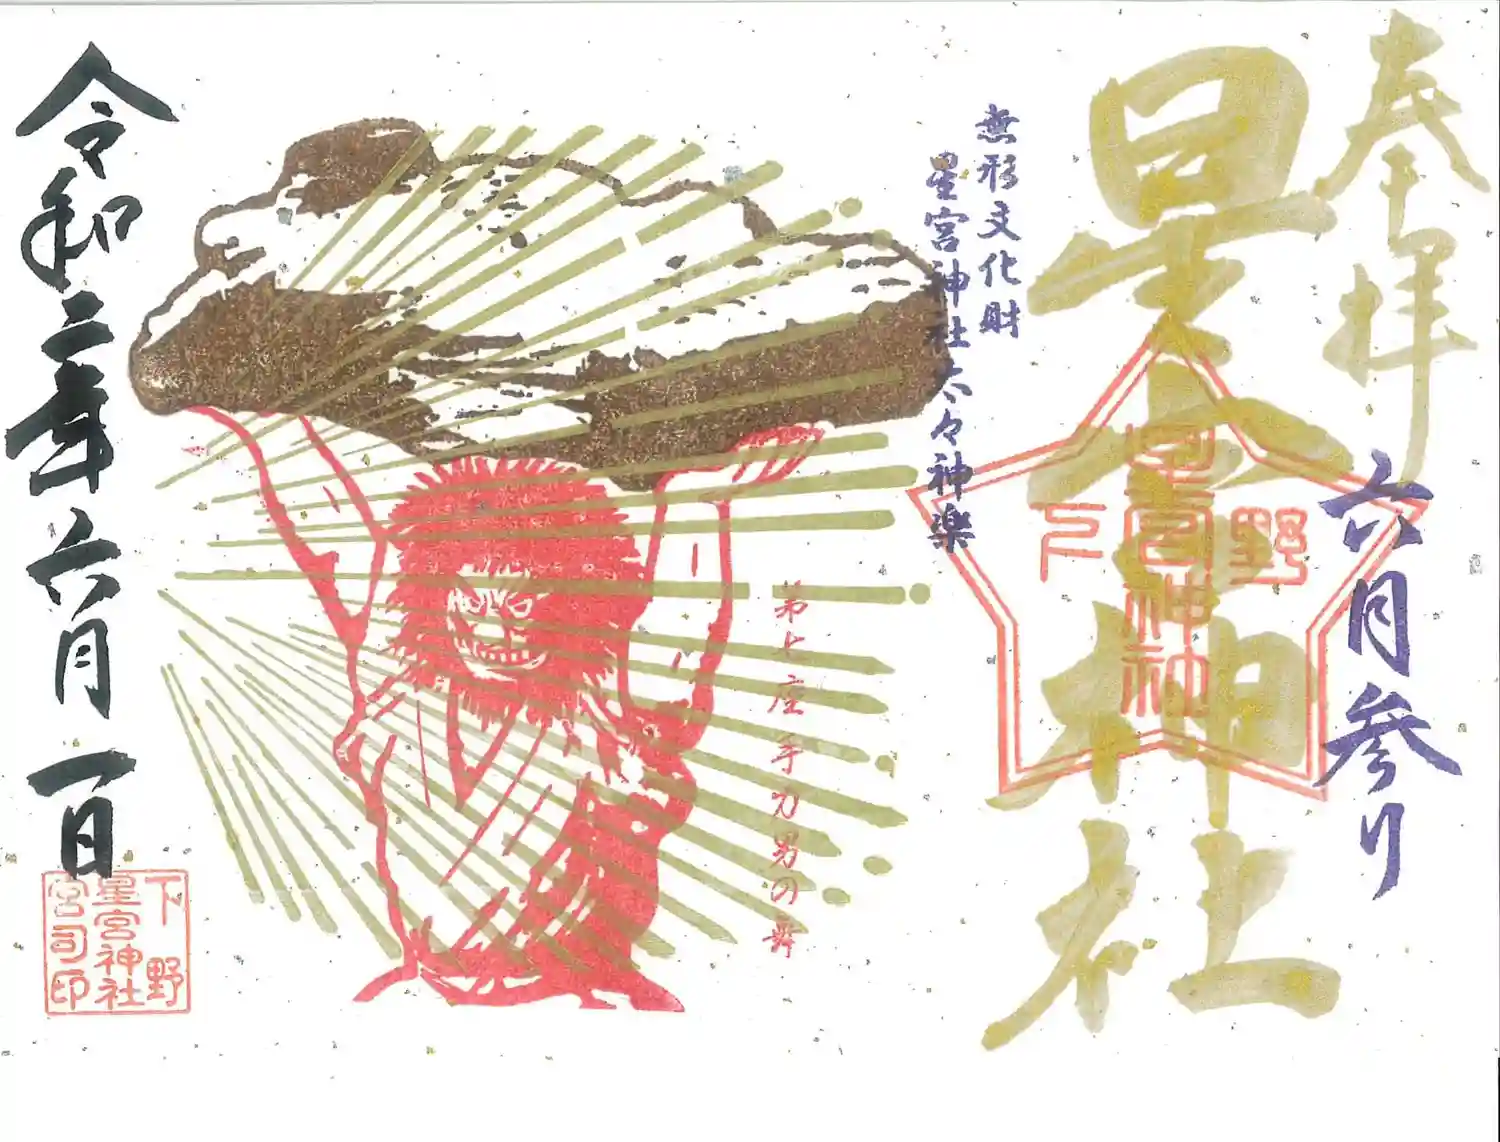 奉拝
六月参り
星宮神社
下野
無形文化財
星宮神社太々神楽
第七座手力男の舞
令和二年六月一日
下野
星宮神社
宮司印